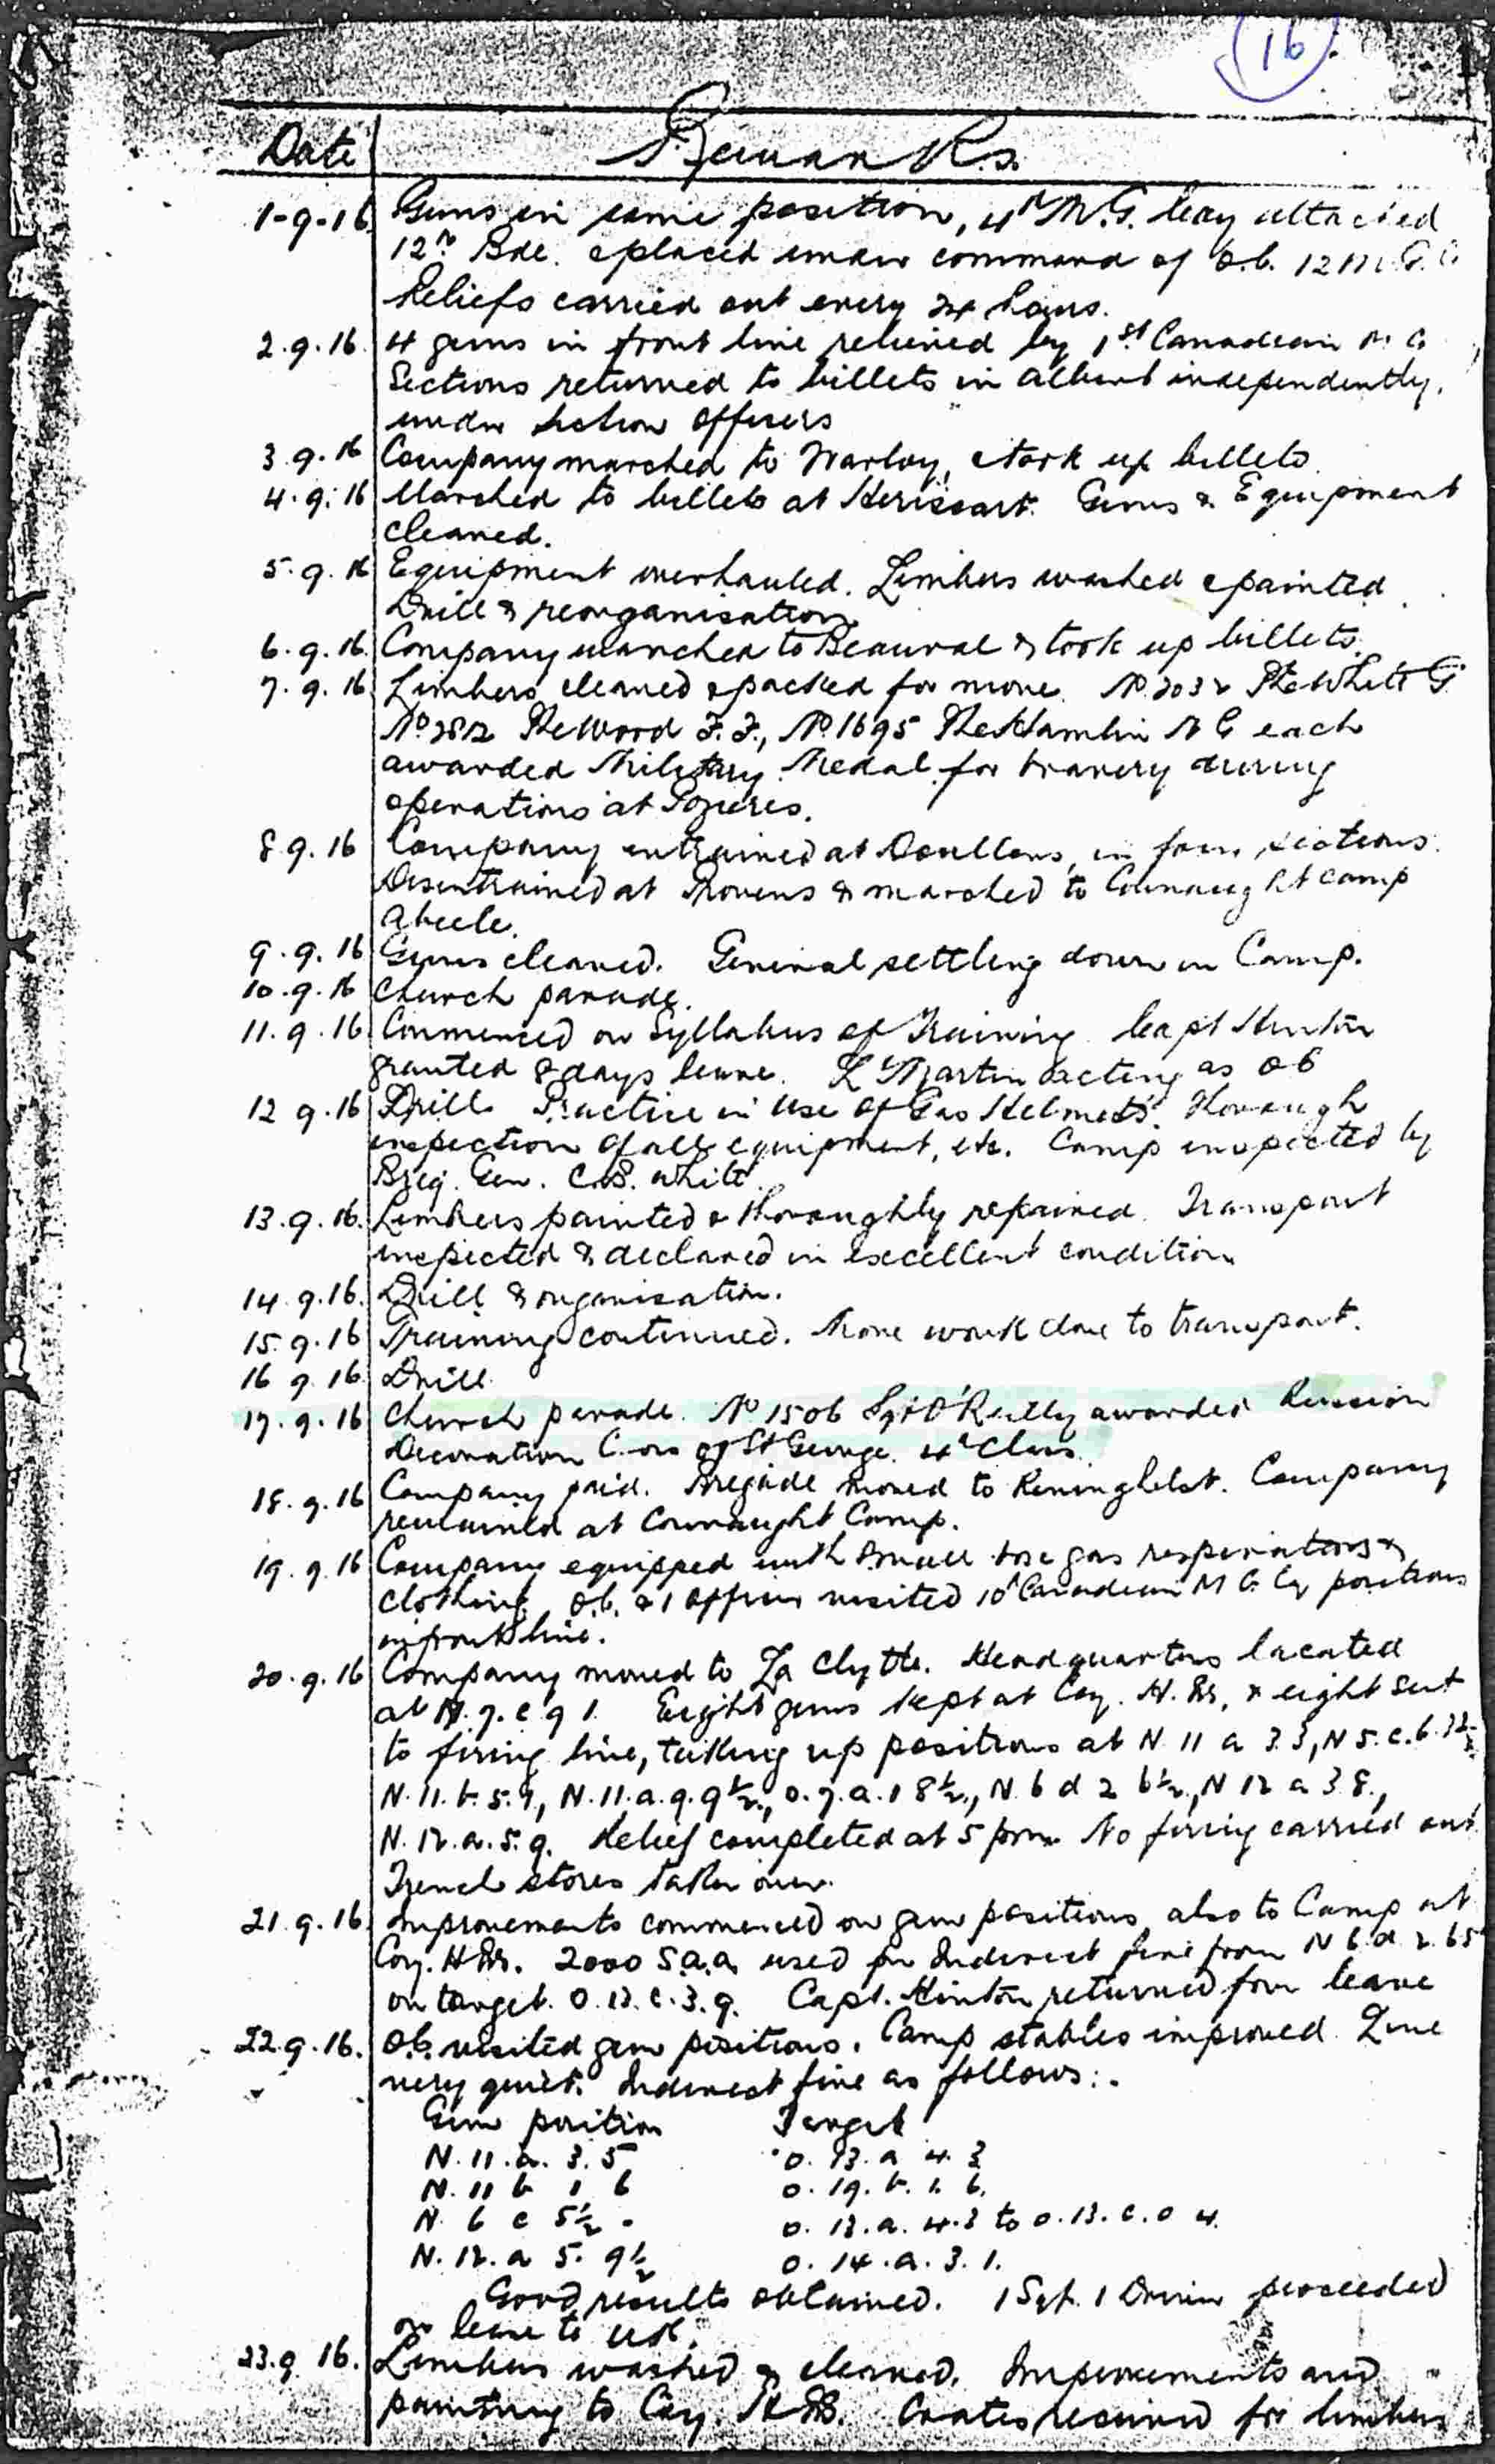 16
Date Remarks.
1-9-16 Guns in same position, 4th M.G. Coy attached
12th Bde. & placed under command of O.C. 12 M.G.C.
Reliefs carried out every 24 hours.
2.9.16. 4 guns in front line relieved by 1st Canadian M.G.
Sections returned to billets in Albert independently,
under Section Officers
3.9.16 Company marched to Warloy, & took up billets.
4.9.16 Marched to billets at Herissart. Guns & Equipment
cleaned.
5.9.16 Equipment overhauled. Limbers washed & painted.
Drill & reorganisation.
6.9.16. Company marched to Beauval & took up billets.
7.9.16 Limbers cleaned & packed for move. No. 2032 Pte White G
No 2812 Pte Wood F.F., No. 1695 Pte Hamlin N G each
awarded Military Medal for bravery during
operations at Pozieres.
8.9.16 Company entrained at Doullens, in four sections.
Disentrained at Provens & marched to Connaught Camp
Abeele.
9.9.16 Guns cleaned. General settling down in Camp.
10.9.16 Church parade.
11.9.16. Commenced on Syllabus of Training. Capt Hinton
granted 8 days leave. Lt Martin acting as OC
12 9.16 Drill. Practice in use of Gas Helmets. Thorough
inspection of all equipment, etc. Camp inspected by
Brig. Gen. C.B. White.
13.9.16. Limbers painted & thoroughly repaired. Transport
inspected & declared in excellent condition.
14.9.16. Drill & organisation.
15.9.16 Training continued. More work done to transport.
16 9.16 Drill.
17.9.16 Church parade. No 1506 Sgt O'Reilly awarded Russian
Decoration Cross of St George. 4th Class.
18.9.16 Company paid. Brigade moved to Reninghelst. Company
remained at Connaught Camp.
19.9.16 Company equipped with small box gas respirators &
clothing. O.C. & 1 Officer visited 10th Canadian M G. Coy positions
in front line.
20.9.16 Company moved to La Clytte. Headquarters located
at N.7.c 9 1. Eight guns kept at Coy. H.Qrs, & eight sent
to firing line, taking up positions at N 11 a 3.3, N 5.c.6.
N.11.b.5.9, N.11.a.9.9½, O.7.a.1 8½, N 6 d 2 6½, N 12 a 3 8.,
N.12.a.5.9. Relief completed at 5 pm. No firing carried out.
Trench stores taken over.
21.9.16. Improvements commenced on gun positions, also to Camp at
Coy. H.Qrs. 2000 S.A.A. used for Indirect fire from N 6.d 2. 6 5
on target. O.13.c.3.9. Capt. Hinton returned from leave
22.9.16. O.C. visited gun positions. Camp stables improved. Line
very quiet. Indirect fire as follows:-
Gun position Target
N.11.a.3.5 O.13.a 4.3
N.11 b 1 6 O.19.b.1.6.
N. 6 c 5½ . O.13.a.4.3 to O.13.c.0 4.
N.12.a 5. 9½ O.14.a.3.1.
Good results obtained. 1 Sgt. 1 Driver proceeded
on leave to U.K.
23.9 16. Limbers washed & cleaned. Improvements and
painting to Coy. H.Qrs. Crates received for limbers